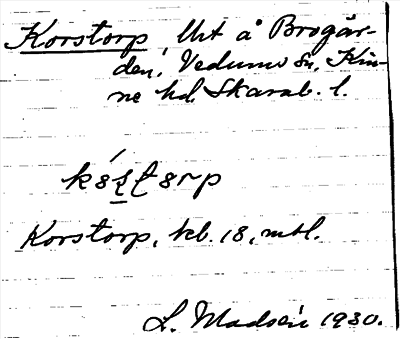 Korstorp, Uht å Brogår-
den, Vedums sn, Kin-
ne hd, Skarab. l.
Korstorp, kb. 18, mtl.
L. Madsén 1930.